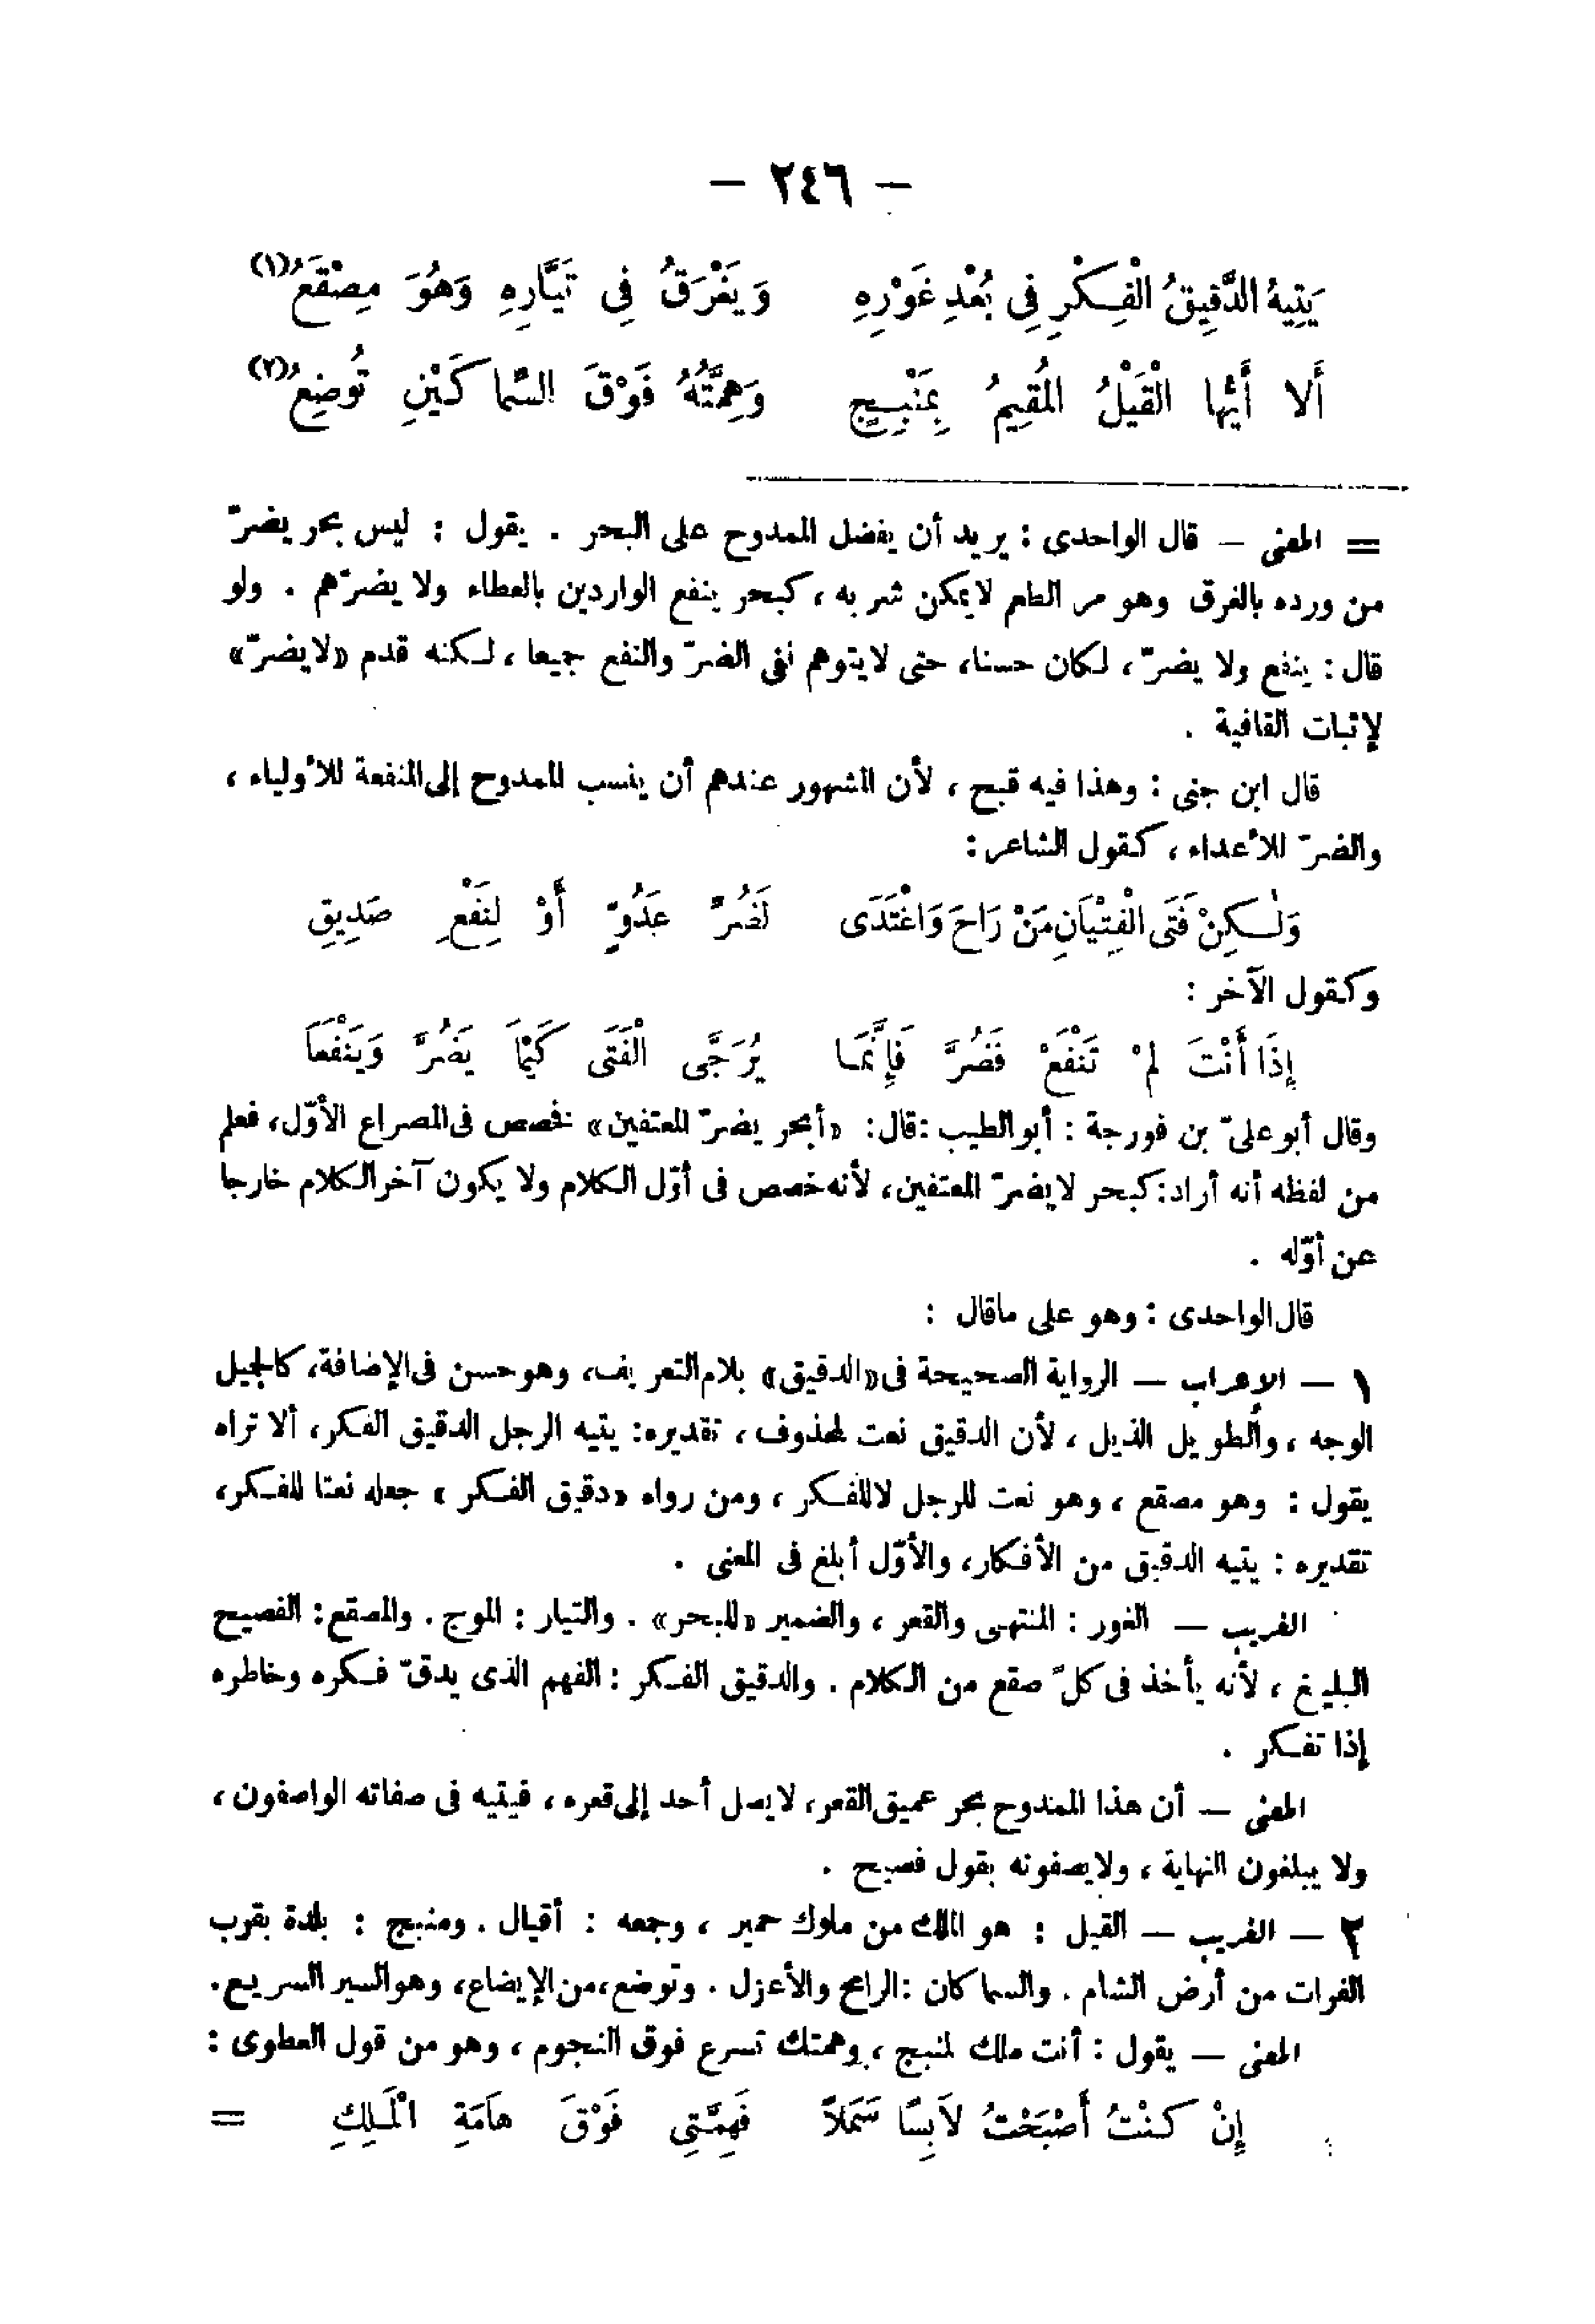 — ٢٤٦ —
يَتِيهُ الدَّقِيقُ الْفِكْرِ فِى بُعْدِ غَوْرِهِ وَيَغْرَقُ فِى تَيَّارِهِ وَهُوَ مِصْقَعُ (١)
أَلا أَيُّها الْقَيْلُ المُقِيمُ بِمَنْبِجٍ وَهِمَّتُهُ فَوْقَ السِّماكَيْنِ تُوضِعُ (٢)
= المعنى — قال الواحدى : يريد أن يفضل الممدوح على البحر . يقول : ليس بحر يضرّ
من ورده بالغرق وهو مر الطعم لايمكن شربه ، كبحر ينفع الواردين بالعطاء ولا يضرّهم . ولو
قال : ينفع ولا يضرّ ، لكان حسنا، حتى لايتوهم نفى الضرّ والنفع جميعا ، لكنه قدم «لايضرّ»
لإثبات القافية .
قال ابن جنى : وهذا فيه قبح ، لأن المشهور عندهم أن ينسب الممدوح إلى المنفعة للأولياء ،
والضرّ للأعداء ، كقول الشاعر :
وَلٰكِنْ فَتَى الْفِتْيَانِ مَنْ رَاحَ وَاغْتَدَى لَضُرِّ عَدُوٍّ أَوْ لِنَفْعِ صَدِيقِ
وكقول الآخر :
إِذَا أَنْتَ لَمْ تَنْفَعْ فَضُرَّ فَإِنَّمَا يُرَجَّى الْفَتَى كَيْمَا يَضُرَّ وَيَنْفَعَا
وقال أبو علىّ بن فورجة : أبو الطيب :قال: «أبحر يضرّ المعتفين» فخصص فى المصراع الأوّل، فعلم
من لفظه أنه أراد: كبحر لايضرّ المعتفين، لأنه خصص فى أوّل الكلام ولا يكون آخر الكلام خارجا
عن أوّله .
قال الواحدى : وهو على ماقال :
١ — الإعراب — الرواية الصحيحة فى «الدقيق» بلام التعريف، وهو حسن فى الإضافة، كالجميل
الوجه ، والطويل الذيل ، لأن الدقيق نعت لمحذوف ، تقديره: يتيه الرجل الدقيق الفكر، ألا تراه
يقول : وهو مصقع ، وهو نعت للرجل لاللفكر ، ومن رواه «دقيق الفكر » جعله نعتا للفكر،
تقديره : يتيه الدقيق من الأفكار، والأوّل أبلغ فى المعنى .
الغريب — الغور : المنتهى والقعر ، والضمير «للبحر» . والتيار : الموج . والمصقع: الفصيح
البليغ ، لأنه يأخذ فى كلّ صقع من الكلام . والدقيق الفكر : الفهم الذى يدقّ فكره وخاطره
إذا تفكر .
المعنى — أن هذا الممدوح بحر عميق القعر، لايصل أحد إلى قعره ، فيتيه فى صفاته الواصفون ،
ولا يبلغون النهاية ، ولايصفونه بقول فصيح .
٢ — الغريب — القيل : هو الملك من ملوك حمير ، وجمعه : أقيال . ومنبج : بلدة بقرب
الفرات من أرض الشام . والسماكان : الرامح والأعزل . وتوضع،من الإيضاع، وهو السير السريع.
المعنى — يقول : أنت ملك لمنبج ، وهمتك تسرع فوق النجوم ، وهو من قول العطوى :
إِنْ كُنْتُ أَصْبَحْتُ لاَبِسًا سَمَلاً فَهِمَّتِى فَوْقَ هَامَةِ الْمَلِكِ =